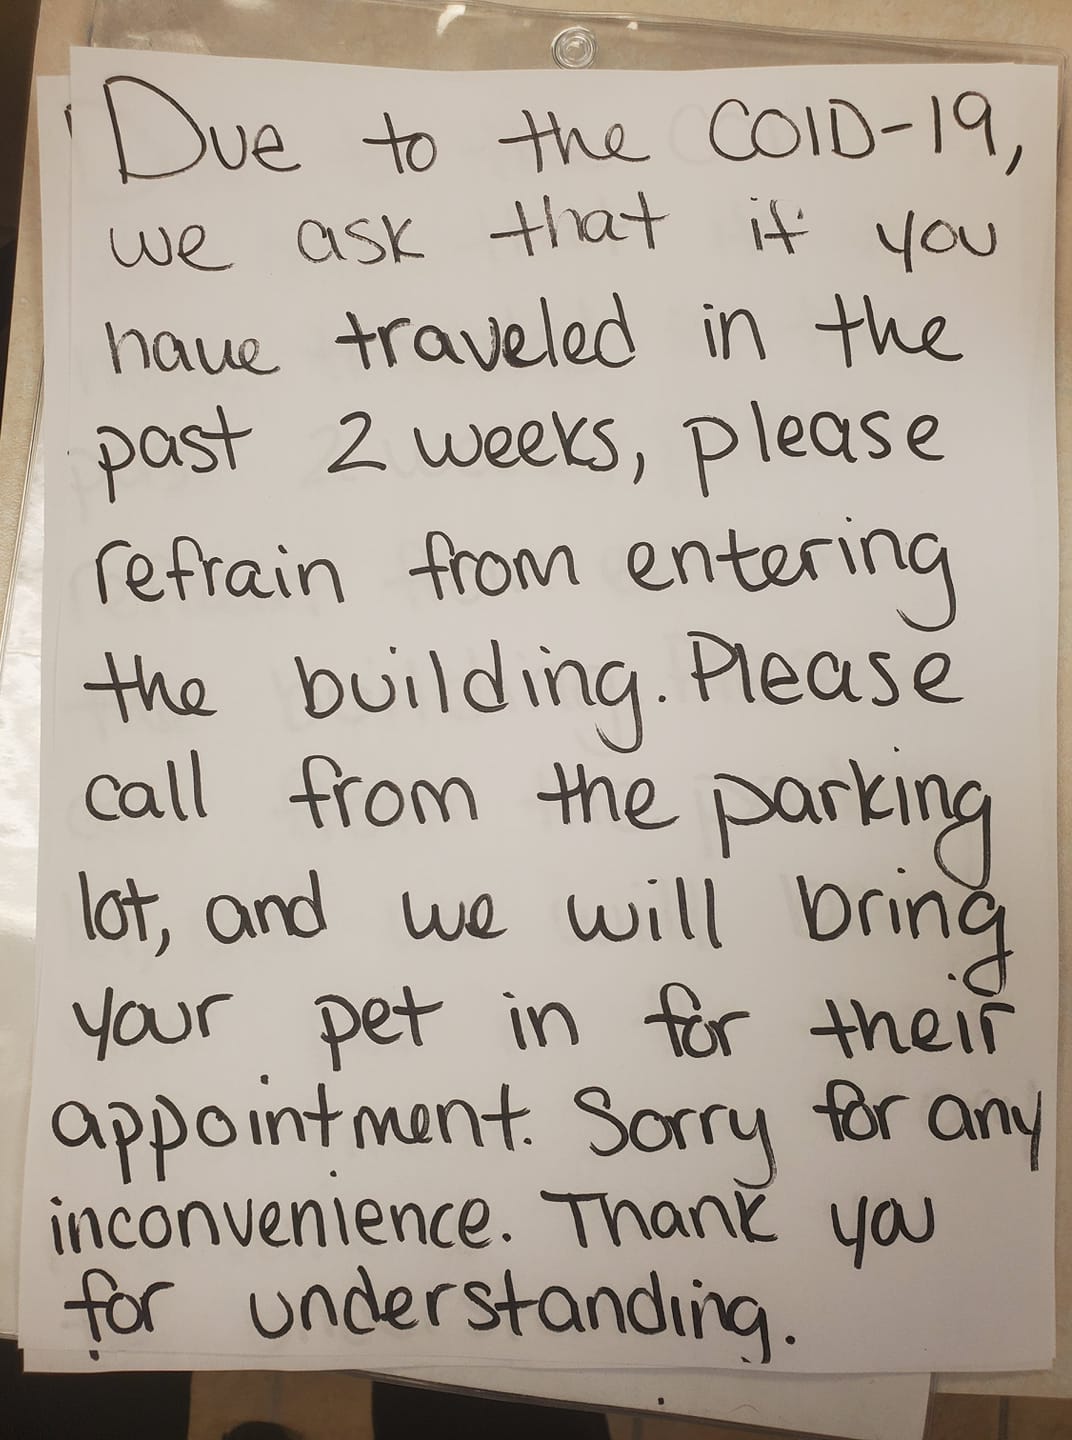 Due to the COID-19,
we ask that if you
have traveled in the
past 2 weeks, please
refrain from entering
the building. Please
call from the parking
lot, and we will bring
your pet in for their
appointment. Sorry for any
inconvenience. Thank you
for understanding.